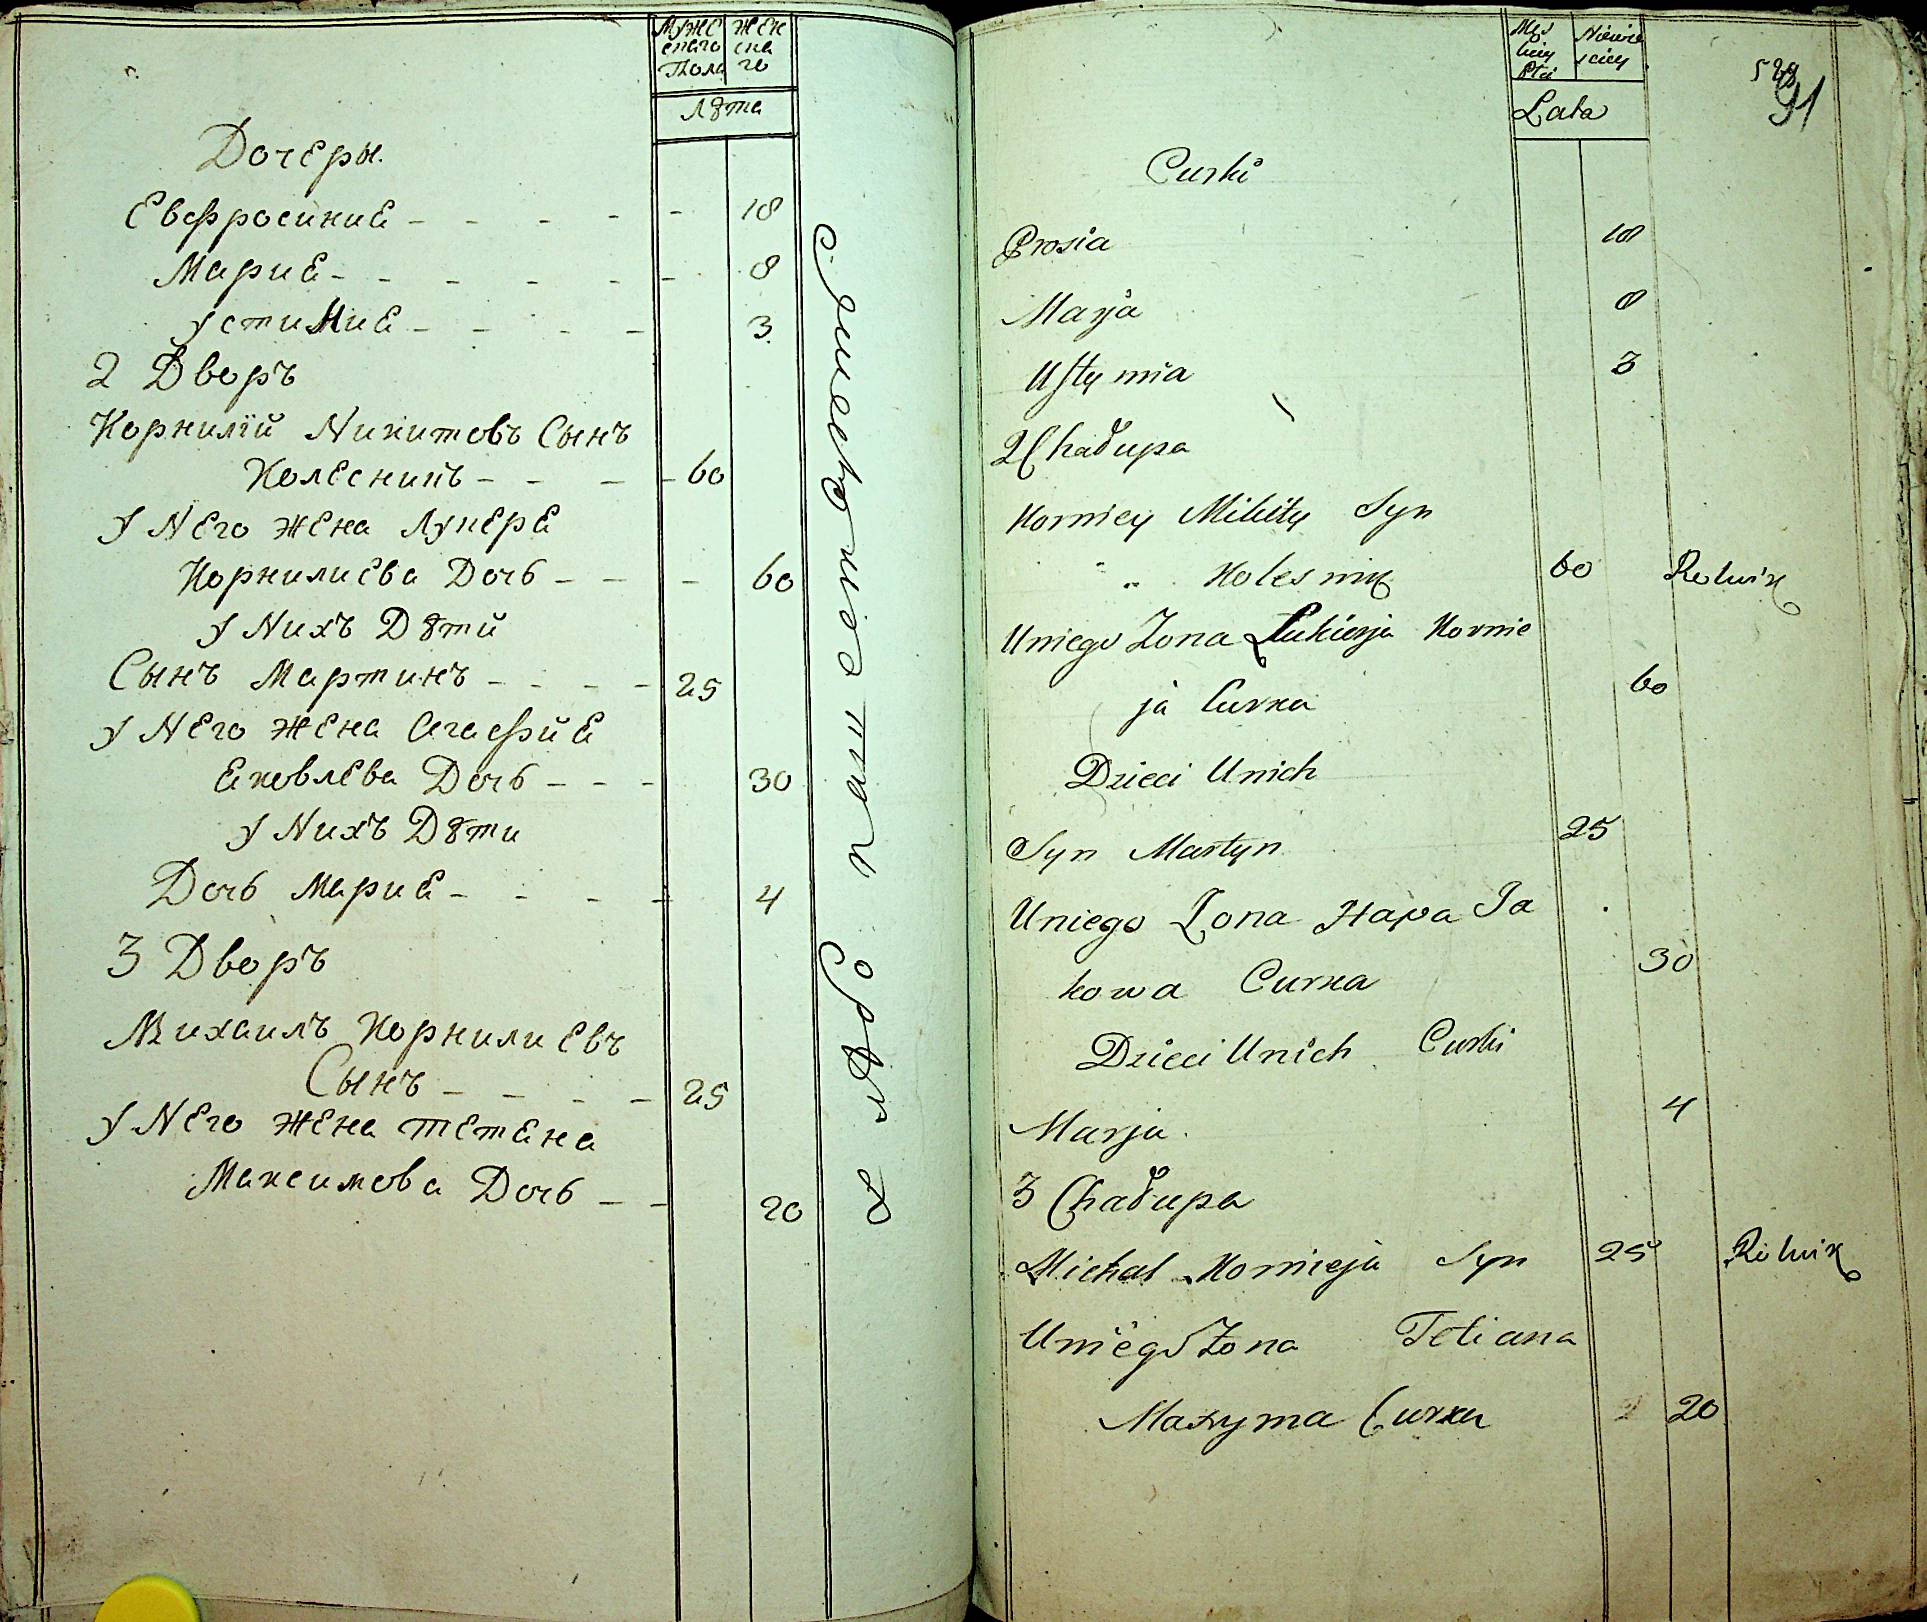 Муже жен
скаго ска
Пола го
Лѣта
Дочеры.
Евфросиние - - - - - 18
Марие - - - - - - 8
Устиние - - - - - 3
2 Дворъ
Корнилій Никитовъ Сынъ
Колесникъ - - - - 60
У Него жена Лукере
Корнилиева Дочь - - - 60
У Нихъ Дѣти
Сынъ Мартинъ - - - - 25
У Него жена Агафийе
Яковлева Дочь - - - 30
У Нихъ Дѣти
Дочь Марие - - - - 4
3 Дворъ
Михаилъ Корнилиевъ
Сынъ - - - - 25
У Него жена Тетяна
Максимова Дочь - - 20
Męs Niewie
kiey sciey
Płci
Lata
91
Curki
Prosia 18
Marja 8
Ustymia 3
2 Chałupa
Korniey Mikity Syn
Kolesnik 60 Rolnik
Uniego Żona Lukierja Kornie
ja Curka 60
Dzieci Unich
Syn Martyn 25
Uniego Żona Hapa Ja
kowa Curka 30
Dzieci Unich Curki
Marja 4
3 Chałupa
Michał Kornieja Syn 25 Rolnik
Uniego Żona Tetiana
Maxyma Curka 20